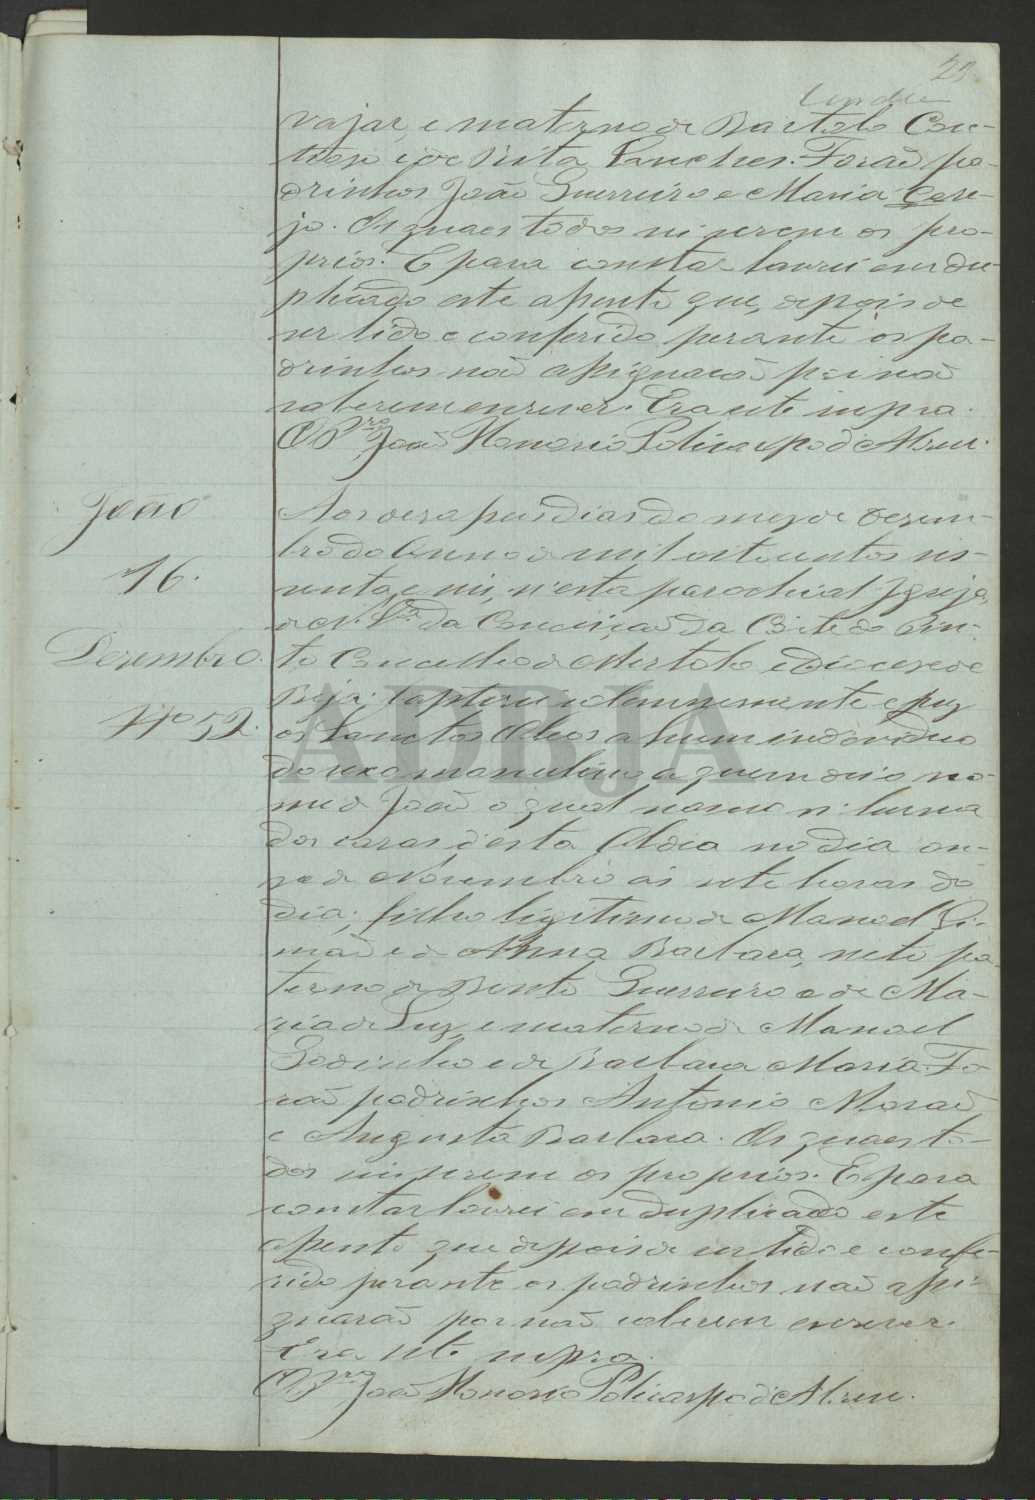 23
vajar, e materno de Bartolo Con-
deça e de Rita Sanches. Forão pa-
drinhos João Guerreiro e Maria Care-
jo. Os quaes todos sei serem os pro-
prios. E para constar lavrei em du-
plicado este assento que, depois de
ser lido e conferido perante os pa-
drinhos não assignarão por não
saberem escrever. Era ut supra.
O P.re João Honorio Policarpo d'Abreu.
João
16.
Dezembro.
Nº 52.
Aos dezaseis dias do mez de Dezem-
bro do Anno de mil oitocentos ses-
senta e seis, n'esta parochial Igreja
de N. Srª da Conceição da Corte do Pin-
to Concelho de Mertola e Diocese de
Beja; baptizei solemnemente e puz
os Sanctos Oleos a hum individuo
do sexo masculino a quem dei o no-
me de João o qual nasceo n'huma
das casas d'esta Aldea no dia on-
ze de Novembro ás sete horas do
dia; filho ligitimo de Manoel Si-
mão e de Anna Barbara, neto pa-
terno de Bento Guerreiro e de Ma-
ria da Luz, e materno de Manoel
Godinho e de Barbara Maria. Fo-
rão padrinhos Antonio Morão
e Augusta Barbara. Os quaes to-
dos sei serem os proprios. E para
constar lavrei em duplicado este
assento que depois de ser lido e confe-
rido perante os padrinhos não assi-
gnarão por não saberem escrever.
Era ut supra.
O P.re João Honorio Policarpo d'Abreu.
ADBJA